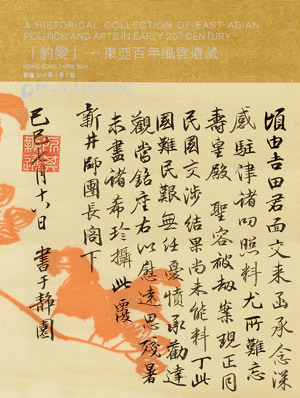 A HISTORICAL COLLECTION OF EAST ASIAN
POLITICS AND ARTS IN EARLY 20TH CENTURY
「豹變」— 東亞百年風雲遺藏
HONG KONG 7 APRIL 2014
香港 2014年4月7日
POLY AUCTION
頃由吉田君面交来函承念深
感駐津諸叨照料尤所難忘
壽皇殿 聖容被劫案現正同
民國交涉結果尚未能料丁此
國難民艱無任憂憤承勸達
觀當銘座右以慰遠思殘暑
未盡諸希珍攝此覆
新井師團長閣下
己巳七月十六日 書于静園